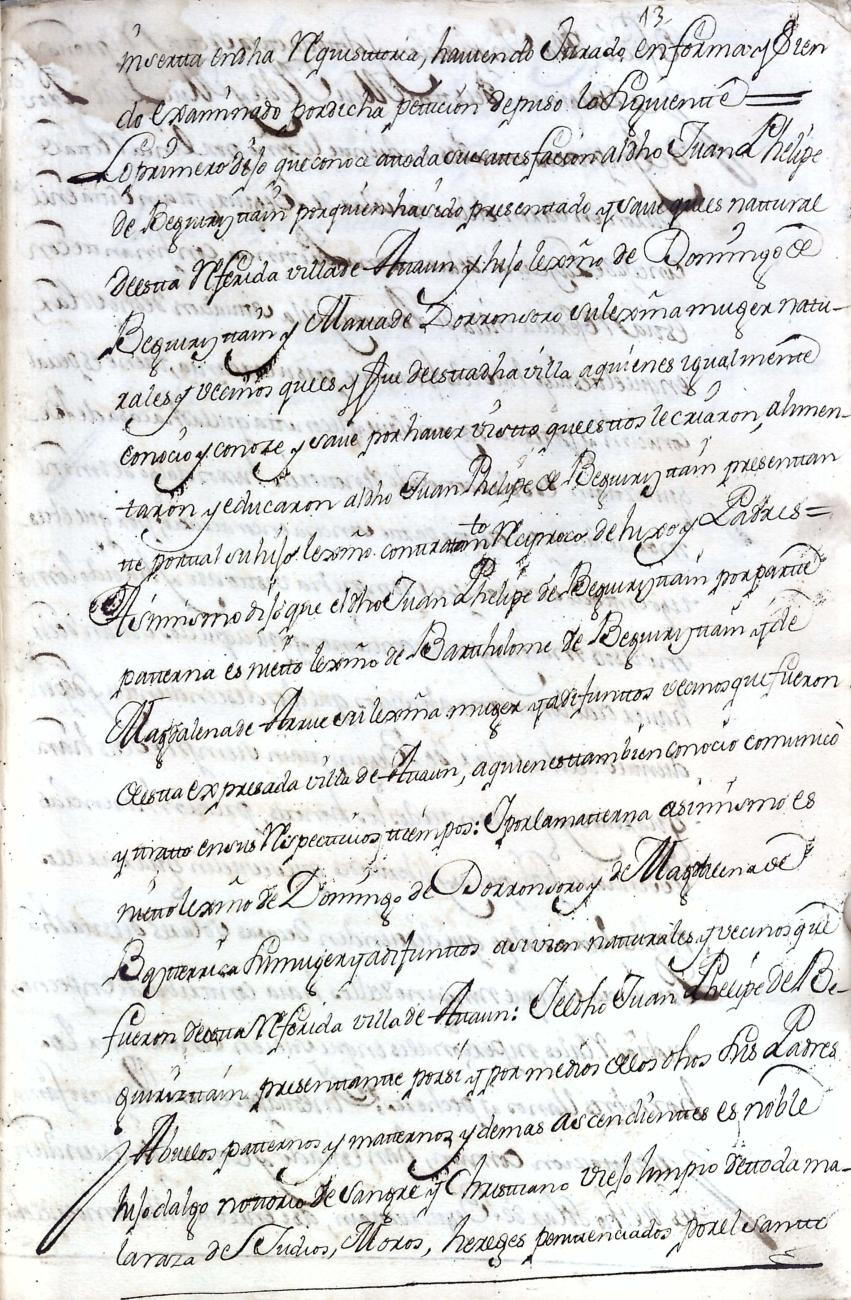 13
inserta en dha Requisitoria, haviendo Jurado, en forma y sien
do examinado por dicha peticion depuso lo siguiente
Lo primero dijo que conoce a toda su satisfacion al dho Juan Phelipe
de Beguiristtain por quien ha sido presentado y save que es natural
de estta Referida villa de Ataun y hijo lexmo de Domingo de
Beguiristtain y Maria de Dorronsoro su lexma muger natu-
rales y vecinos que es, y fue de estta dha villa a quienes igualmente
conocio y conoze, y save por haver visto, que estos le criaron, alimen-
taron y educaron al dho Juan Phelipe de Beguiristtain presentan
te por tal su hijo lexmo con trato Reciproco de hixo y Padres =
Asimismo dijo que el dho Juan Phelipe de Beguiristtain por parte
patterna es nietto lexmo de Bartholome de Beguiristtain y de
Magdalena de Arrue su lexma muger ya difuntos vecinos que fueron
de estta expresada villa de Ataun, a quienes ttambien conocio comunicò
y tratto en sus Respectivos ttiempos: Y por la matterna asimismo es
nietto lexmo de Domingo de Dorronsoro y de Magdalena de
su muger ya difunttos asi vien natturales y vecinos que
fueron de estta Referida villa de Ataun: Y el dho Juan Phelipe de Be-
guiristtain presenttante por sí y por medios de los dhos sus Padres
Abuelos patternos y matternos y demas ascendientes es noble
hijo dalgo nottorio de sangre y Christtiano viejo limpio de ttoda ma-
la raza de Judios, Moros, hereges penitenciados por el Santto